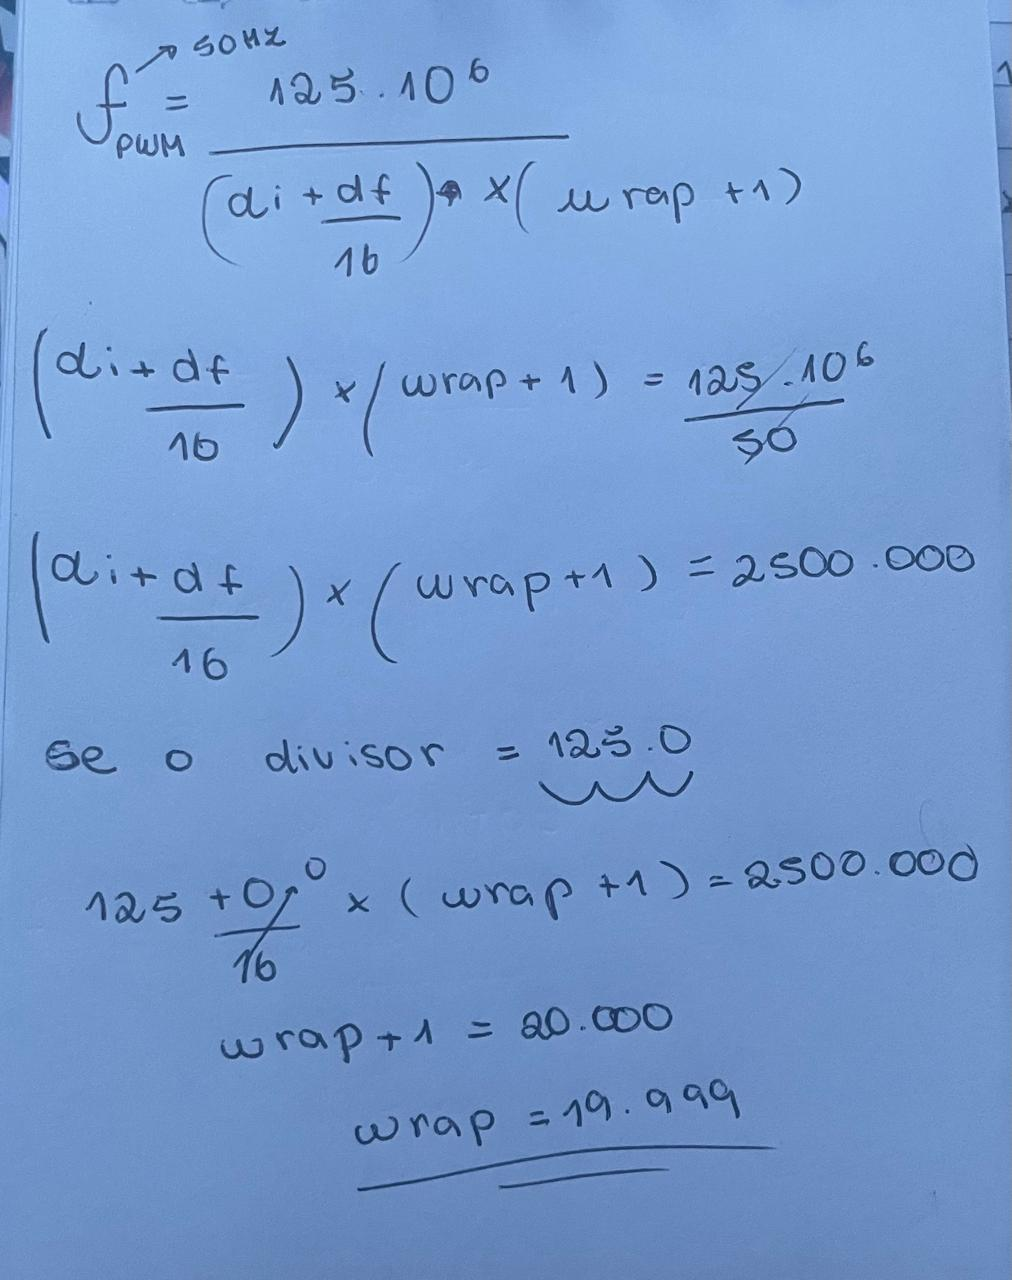 f_PWM ↗ 50Hz = 125 . 10^6
(di + df/16) × (wrap + 1)
(di + df/16) × (wrap + 1) = 125 . 10^6 / 50
(di + df/16) × (wrap + 1) = 2500.000
se o divisor = 125.0
125 + 0/16 ↗ 0 × (wrap + 1) = 2500.000
wrap + 1 = 20.000
wrap = 19.999